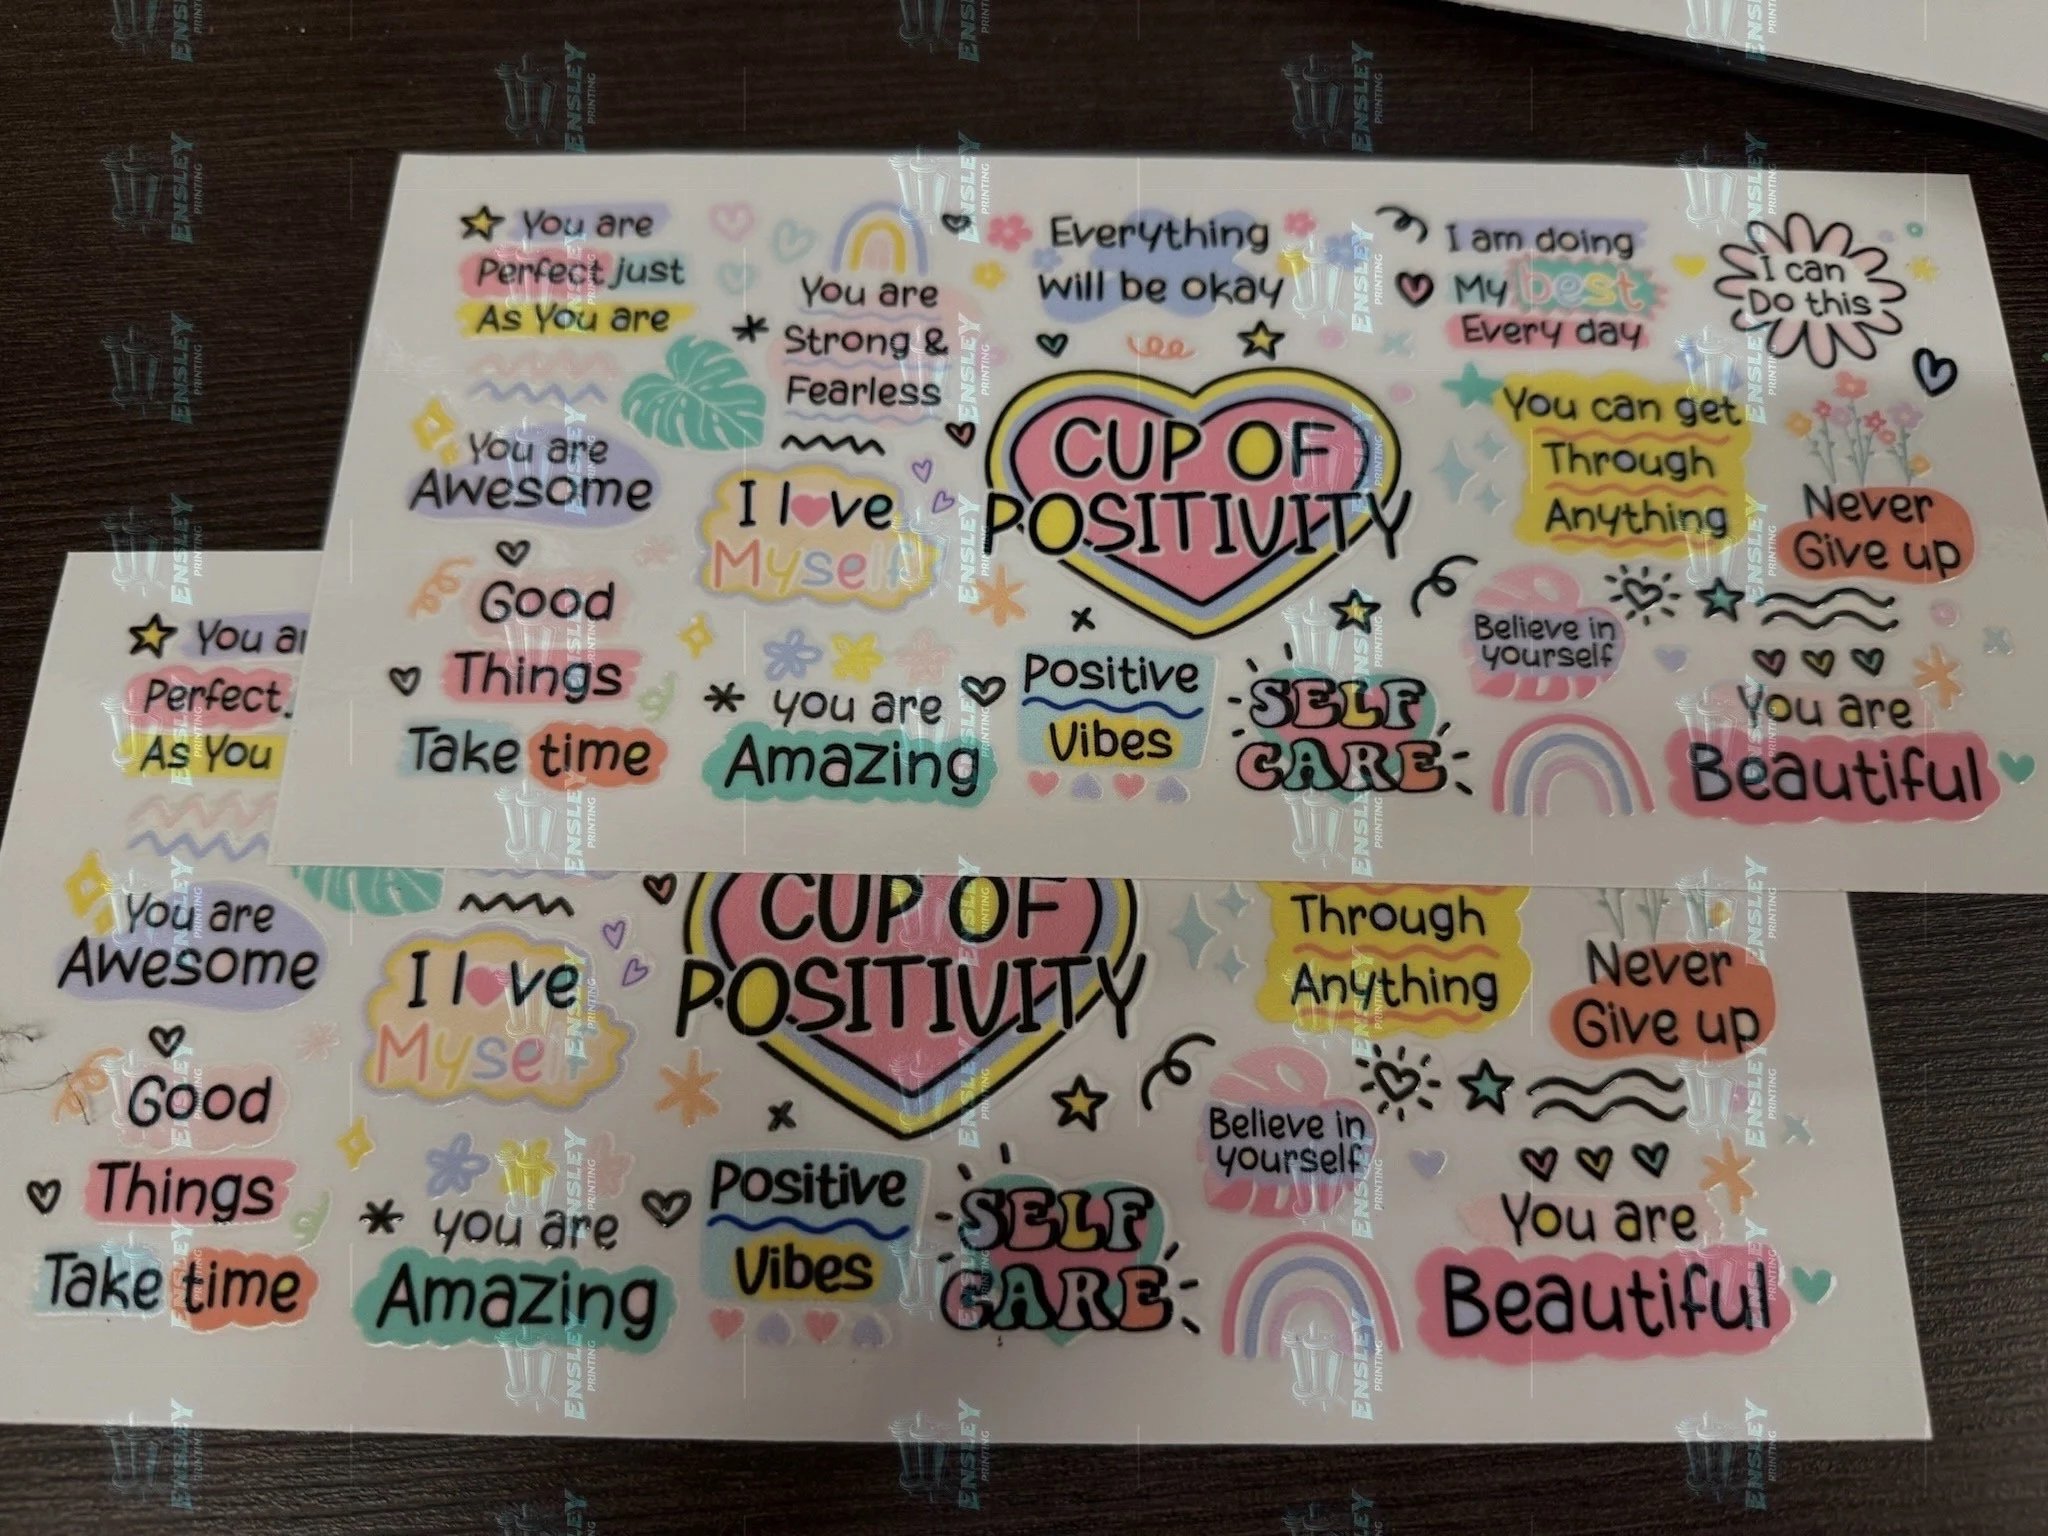 You are
Perfect just
As You are
You are
Strong &
Fearless
Everything
will be okay
I am doing
My best
Every day
I can
Do this
You are
Awesome
I love
Myself
CUP OF
POSITIVITY
You can get
Through
Anything
Never
Give up
Good
Things
Take time
you are
Amazing
Positive
Vibes
SELF
CARE
Believe in
yourself
You are
Beautiful
You ar
Perfect
As You
You are
Awesome
I love
Myself
CUP OF
POSITIVITY
Through
Anything
Never
Give up
Good
Things
Take time
you are
Amazing
Positive
Vibes
SELF
CARE
Believe in
yourself
You are
Beautiful
ENSLEY
PRINTING